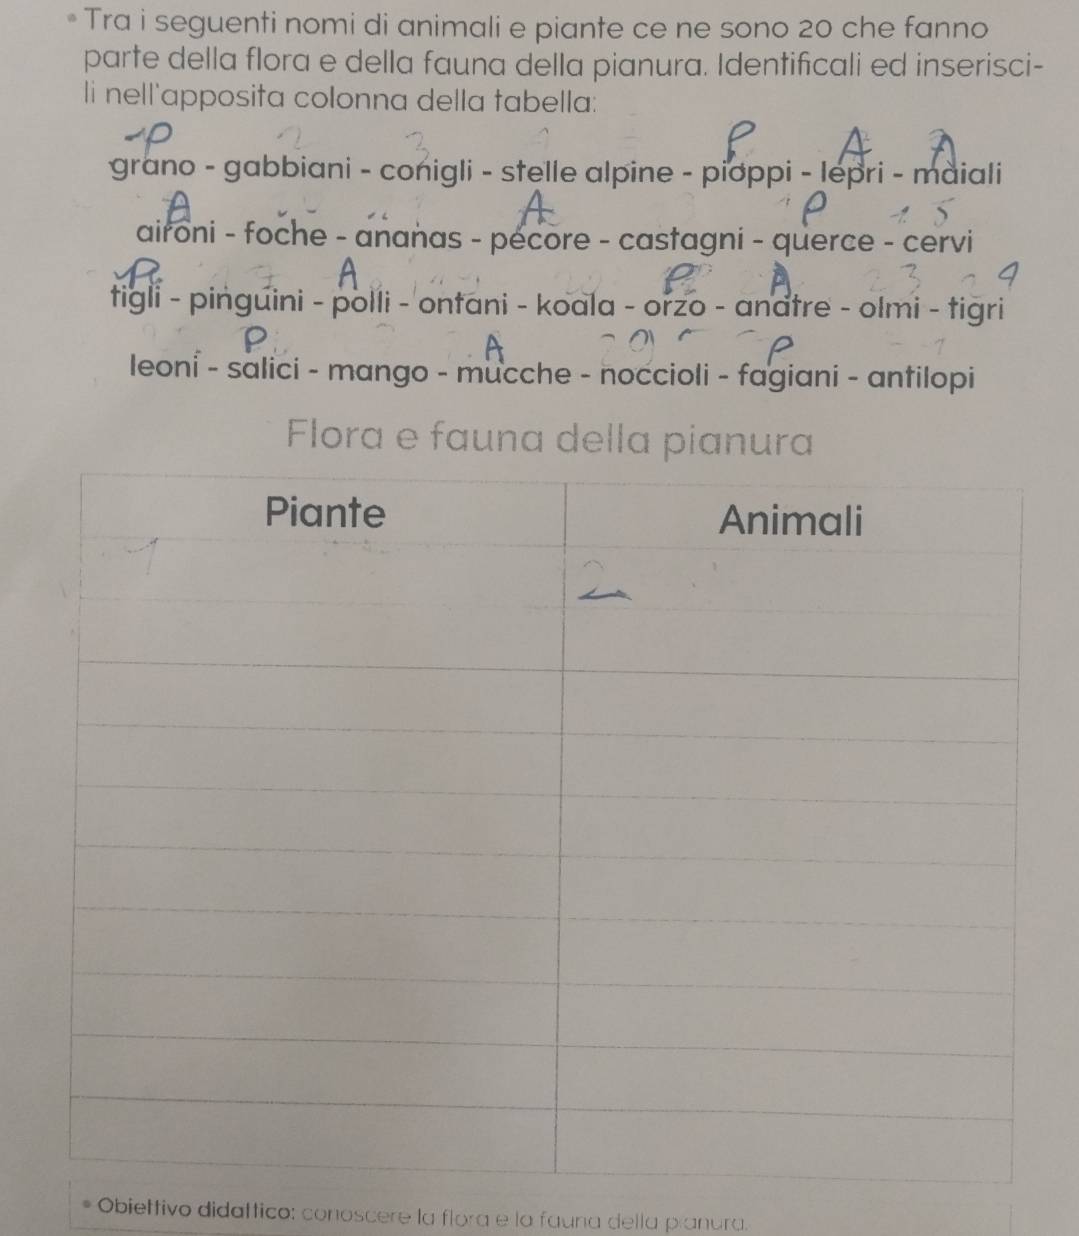 • Tra i seguenti nomi di animali e piante ce ne sono 20 che fanno
parte della flora e della fauna della pianura. Identificali ed inserisci-
li nell'apposita colonna della tabella:
P 2 3 P A A
grano - gabbiani - conigli - stelle alpine - pioppi - lepri - maiali
A A P 5
aironi - foche - ananas - pecore - castagni - querce - cervi
P 7 A P A 3 9
tigli - pinguini - polli - ontani - koala - orzo - anatre - olmi - tigri
P A P
leoni - salici - mango - mucche - noccioli - fagiani - antilopi
Flora e fauna della pianura
Piante Animali
1 2
• Obiettivo didattico: conoscere la flora e la fauna della pianura.